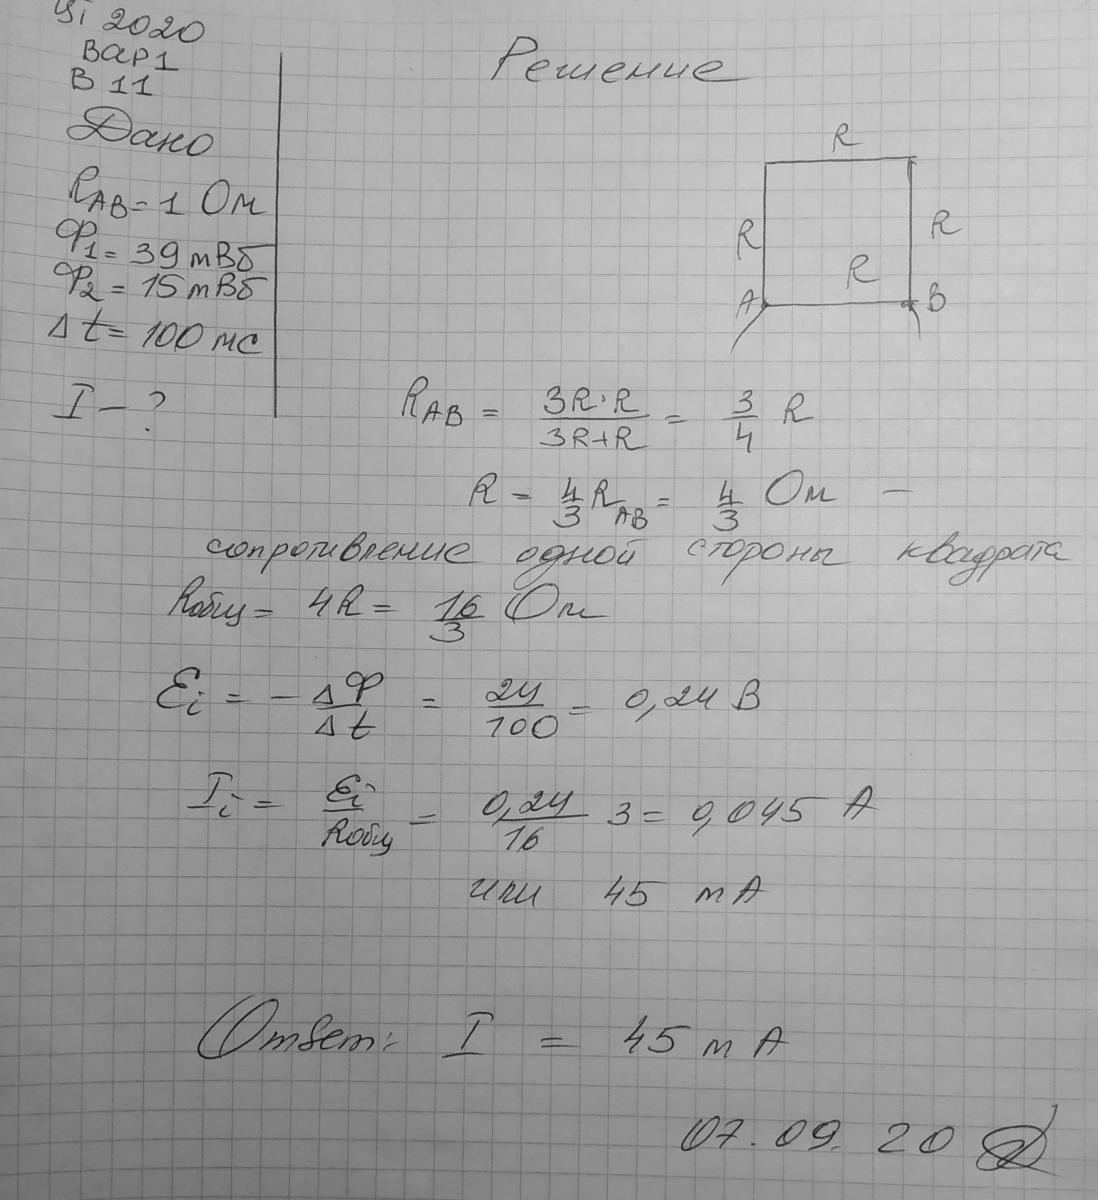 ЦТ 2020
Вар 1
В 11
Дано
R_AB = 1 Ом
Ф₁ = 39 мВб
Ф₂ = 15 мВб
Δt = 100 мс
I - ?
Решение
R
R
R
R
A
B
R_AB = 3R·R / (3R+R) = 3/4 R
R = 4/3 R_AB = 4/3 Ом —
сопротивление одной стороны квадрата
Rобщ = 4R = 16/3 Ом
Ɛi = - ΔФ/Δt = 24/100 = 0,24 В
Ii = Ɛi/Rобщ = 0,24/16 3 = 0,045 А
или 45 мА
Ответ: I = 45 мА
07.09.20